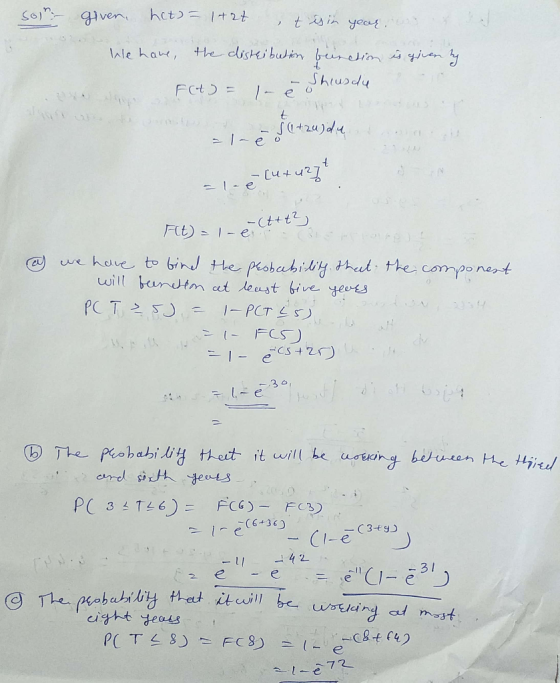 Solⁿ:- given, h(t) = 1+2t , t is in year.
We have, the distribution function is given by
F(t) = 1 - e^{-∫₀ᵗ h(u)du}
= 1 - e^{-∫₀ᵗ (1+2u)du}
= 1 - e^{-[u+u²]₀ᵗ}.
F(t) = 1 - e^{-(t+t²)}
(a) we have to find the probability that the component
will function at least five years
P(T ≥ 5) = 1 - P(T ≤ 5)
= 1 - F(5)
= 1 - e^{-(5+25)}
= 1 - e^{-30}
=
(b) The probability that it will be working between the third
and sixth years
P(3 ≤ T ≤ 6) = F(6) - F(3)
= 1 - e^{-(6+36)} - (1 - e^{-(3+9)})
= e^{-11} - e^{-42} = e^{-11}(1 - e^{-31})
(c) The probability that it will be working at most
eight years
P(T ≤ 8) = F(8) = 1 - e^{-(8+64)}
= 1 - e^{-72}